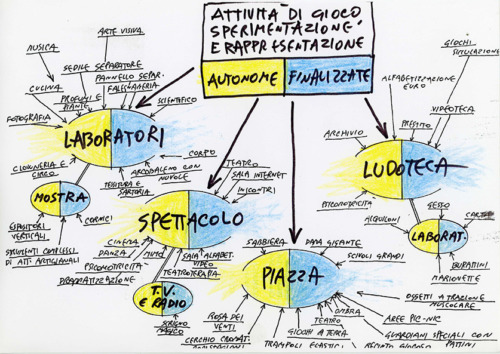 ATTIVITÀ DI GIOCO
SPERIMENTAZIONE
E RAPPRESENTAZIONE
AUTONOME
FINALIZZATE
ARTE VISIVA
MUSICA
SEDILE SEPARATORE
PANNELLO SEPAR.
CUCINA
PROFUMI E
PIANTE
FALEGNAMERIA
SCIENTIFICO
FOTOGRAFIA
LABORATORI
CLOWNERIA E
CIRCO
CORPO
ARCOBALENO CON
NUVOLE
TESSITURA E
SARTORIA
MOSTRA
CORNICI
ESPOSITORI
VERTICALI
STRUMENTI COMPLESSI
DI ATT. ARTIGIANALI
TEATRO
SALA INTERNET
INCONTRI
SPETTACOLO
CINEMA
DANZA
MIMO
PSICOMOTRICITÀ
DRAMMATIZZAZIONE
SALA ALFABET.
VIDEO
TEATROTERAPIA
T.V.
E RADIO
SCRIGNO
MAGICO
GIOCHI
SIMULAZIONE
ALFABETIZZAZIONE
EURO
VIDEOTECA
PRESTITO
ARCHIVIO
LUDOTECA
PSICOMOTRICITÀ
AQUILONI
GESSO
LABORAT.
BURATTINI
MARIONETTE
SABBIERA
DAMA GIGANTE
SCIVOLI GRANDI
PIAZZA
OGGETTI A TRAZIONE
MUSCOLARE
AREE PIC-NIC
GUARDIANI SPECIALI CON
PATTINI
OMBRA
TEATRO
GIOCHI A TERRA
TRAMPOLI ELASTICI
ROSA DEI
VENTI
CERCHIO CROMAT.